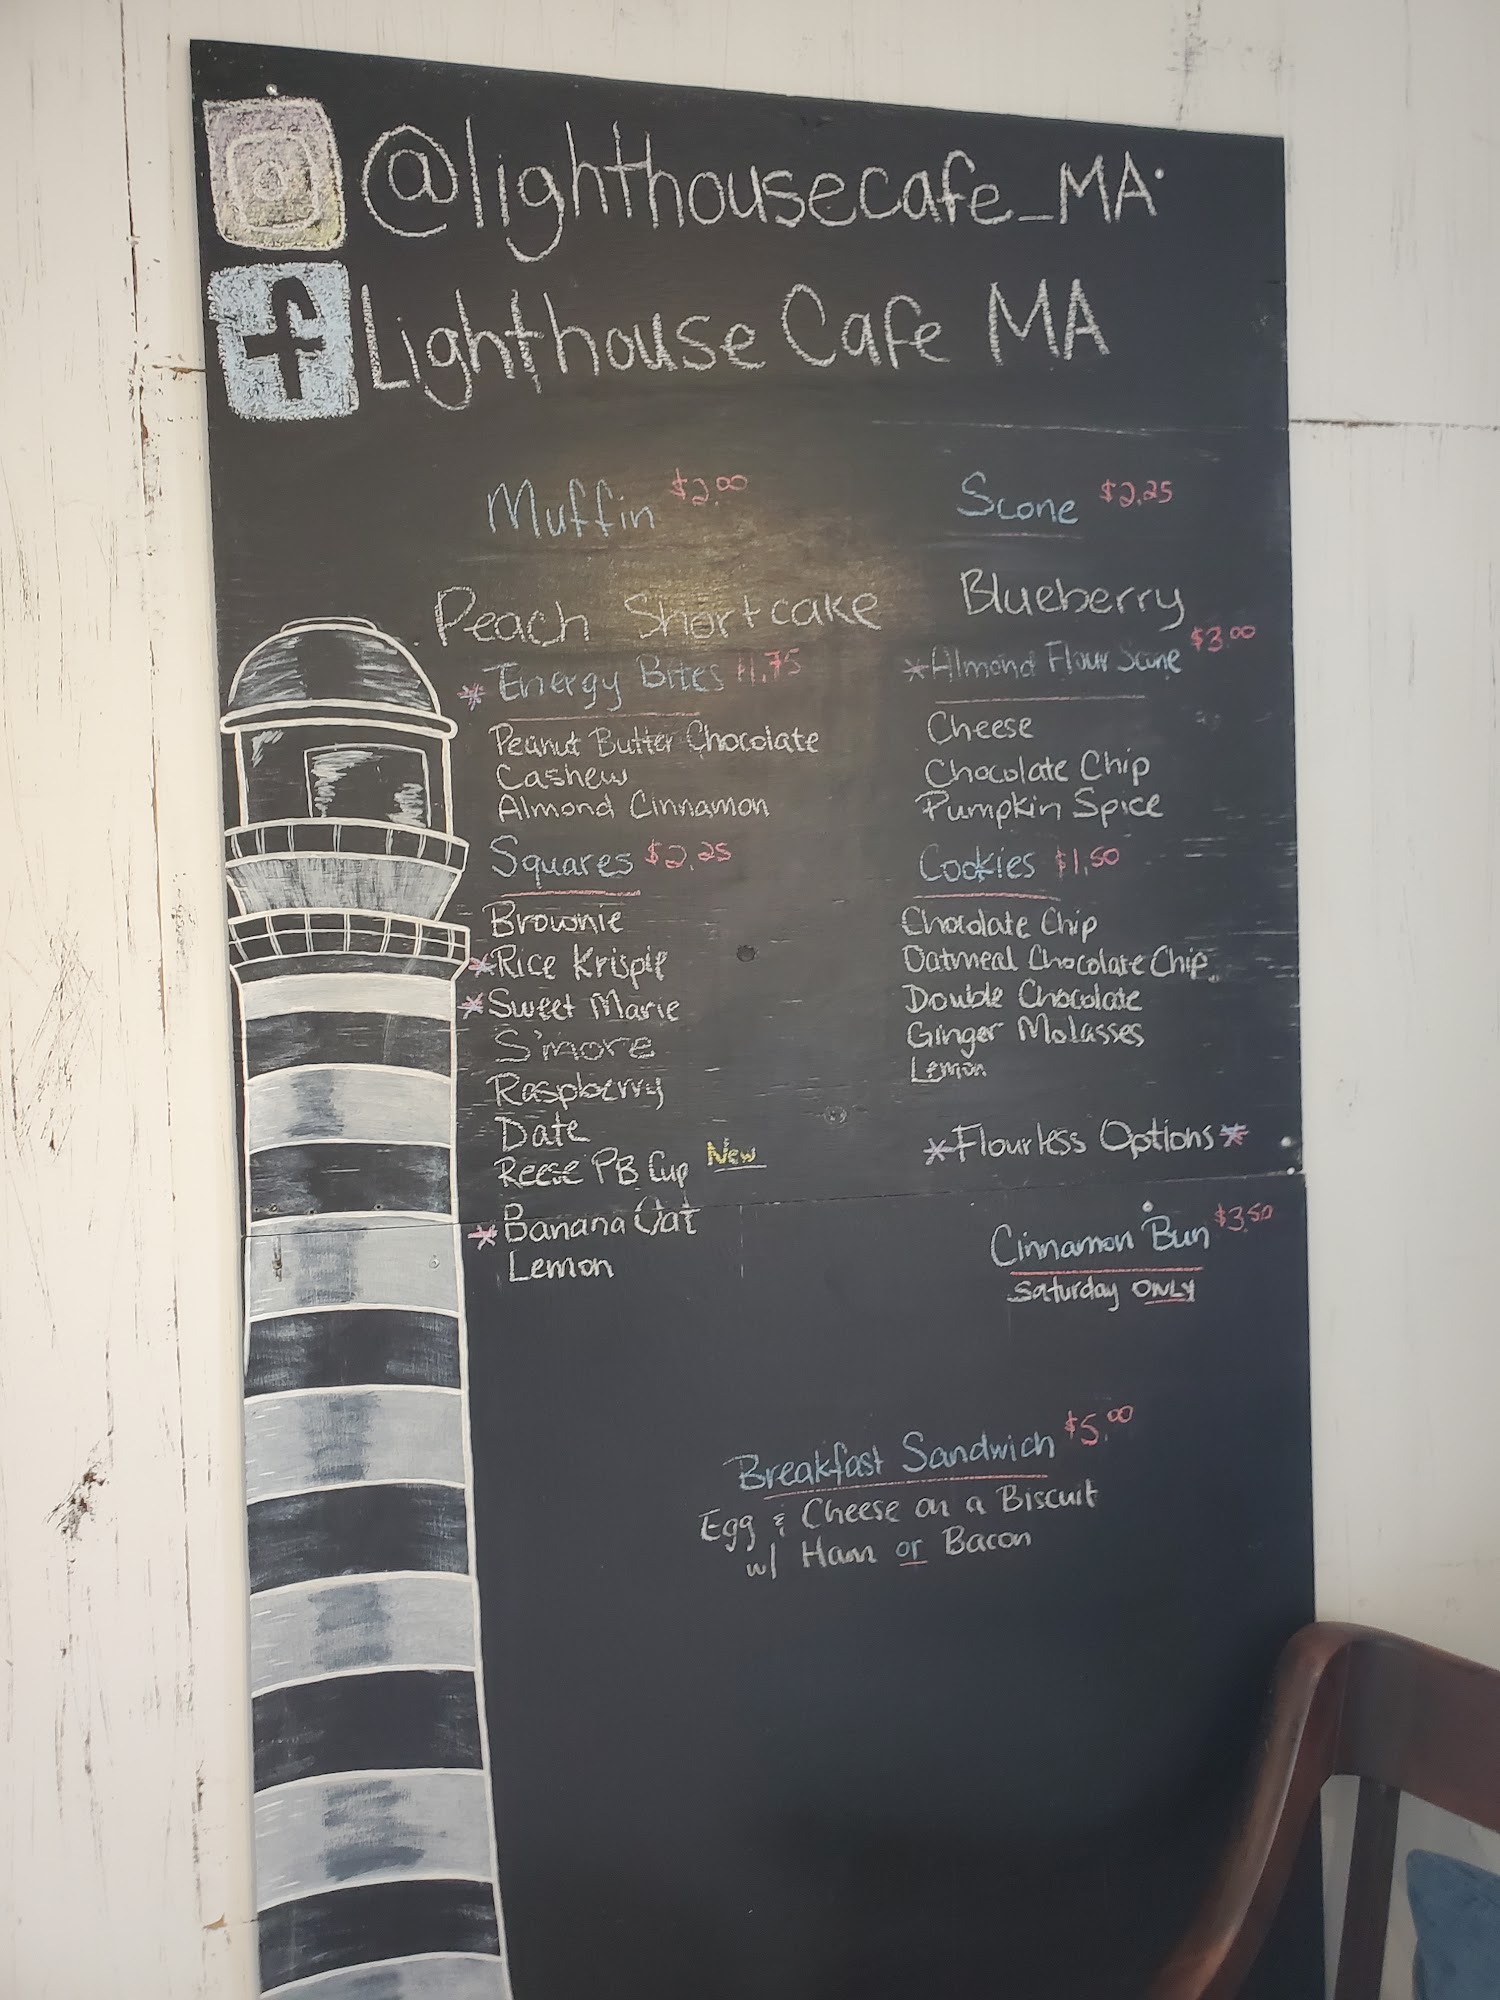 @lighthousecafe_MA
f Lighthouse Cafe MA
Muffin $2.00
Peach Shortcake
*Energy Bites $1.75
Peanut Butter Chocolate
Cashew
Almond Cinnamon
Squares $2.25
Brownie
*Rice Krispie
*Sweet Marie
S'more
Raspberry
Date
Reese PB Cup New
*Banana Oat
Lemon
Scone $2.25
Blueberry
*Almond Flour Scone $3.00
Cheese
Chocolate Chip
Pumpkin Spice
Cookies $1.50
Chocolate Chip
Oatmeal Chocolate Chip
Double Chocolate
Ginger Molasses
Lemon
*Flourless Options*
Cinnamon Bun $3.50
Saturday ONLY
Breakfast Sandwich $5.00
Egg & Cheese on a Biscuit
w/ Ham or Bacon